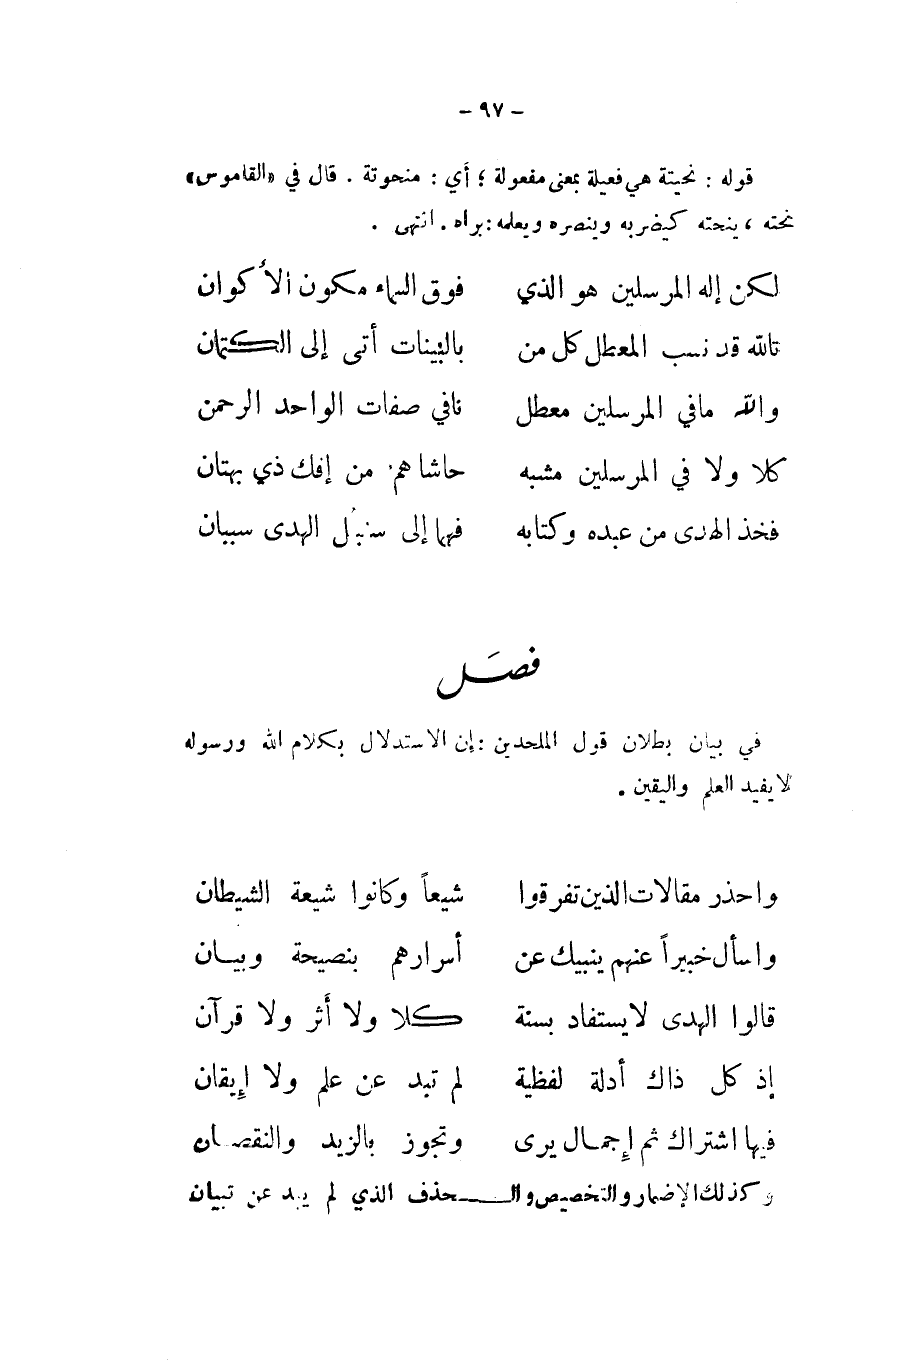 - ٩٧ -
قوله : نحيتة هي فعيلة بمعنى مفعولة ؛ أي : منحوتة . قال في «القاموس»
نحته ، ينحته كيضربه وينصره ويعلمه : براه . انتهى .
لكن إله المرسلين هو الذي فوق السماء مكون الأكوان
تالله قد نسب المعطل كل من بالبينات أتى إلى الكتمان
والله مافي المرسلين معطل نافي صفات الواحد الرحمن
كلا ولا في المرسلين مشبه حاشاهم من إفك ذي بهتان
فخذ الهدى من عبده وكتابه فهما إلى سبل الهدى سببان
فصَل
في بيان بطلان قول الملحدين : إن الاستدلال بكلام الله ورسوله
لايفيد العلم واليقين .
واحذر مقالات الذين تفرقوا شيعاً وكانوا شيعة الشيطان
واسأل خبيراً عنهم ينبيك عن أسرارهم بنصيحة وبيـان
قالوا الهدى لايستفاد بسنة كلا ولا أثر ولا قرآن
إذ كل ذاك أدلة لفظية لم تبد عن علم ولا إيقان
فيها اشتراك ثم إجمـال يرى وتجوز بالزيد والنقصـان
وكذلك الإضمار والتخصيص والـــحذف الذي لم يبد عن تبيان